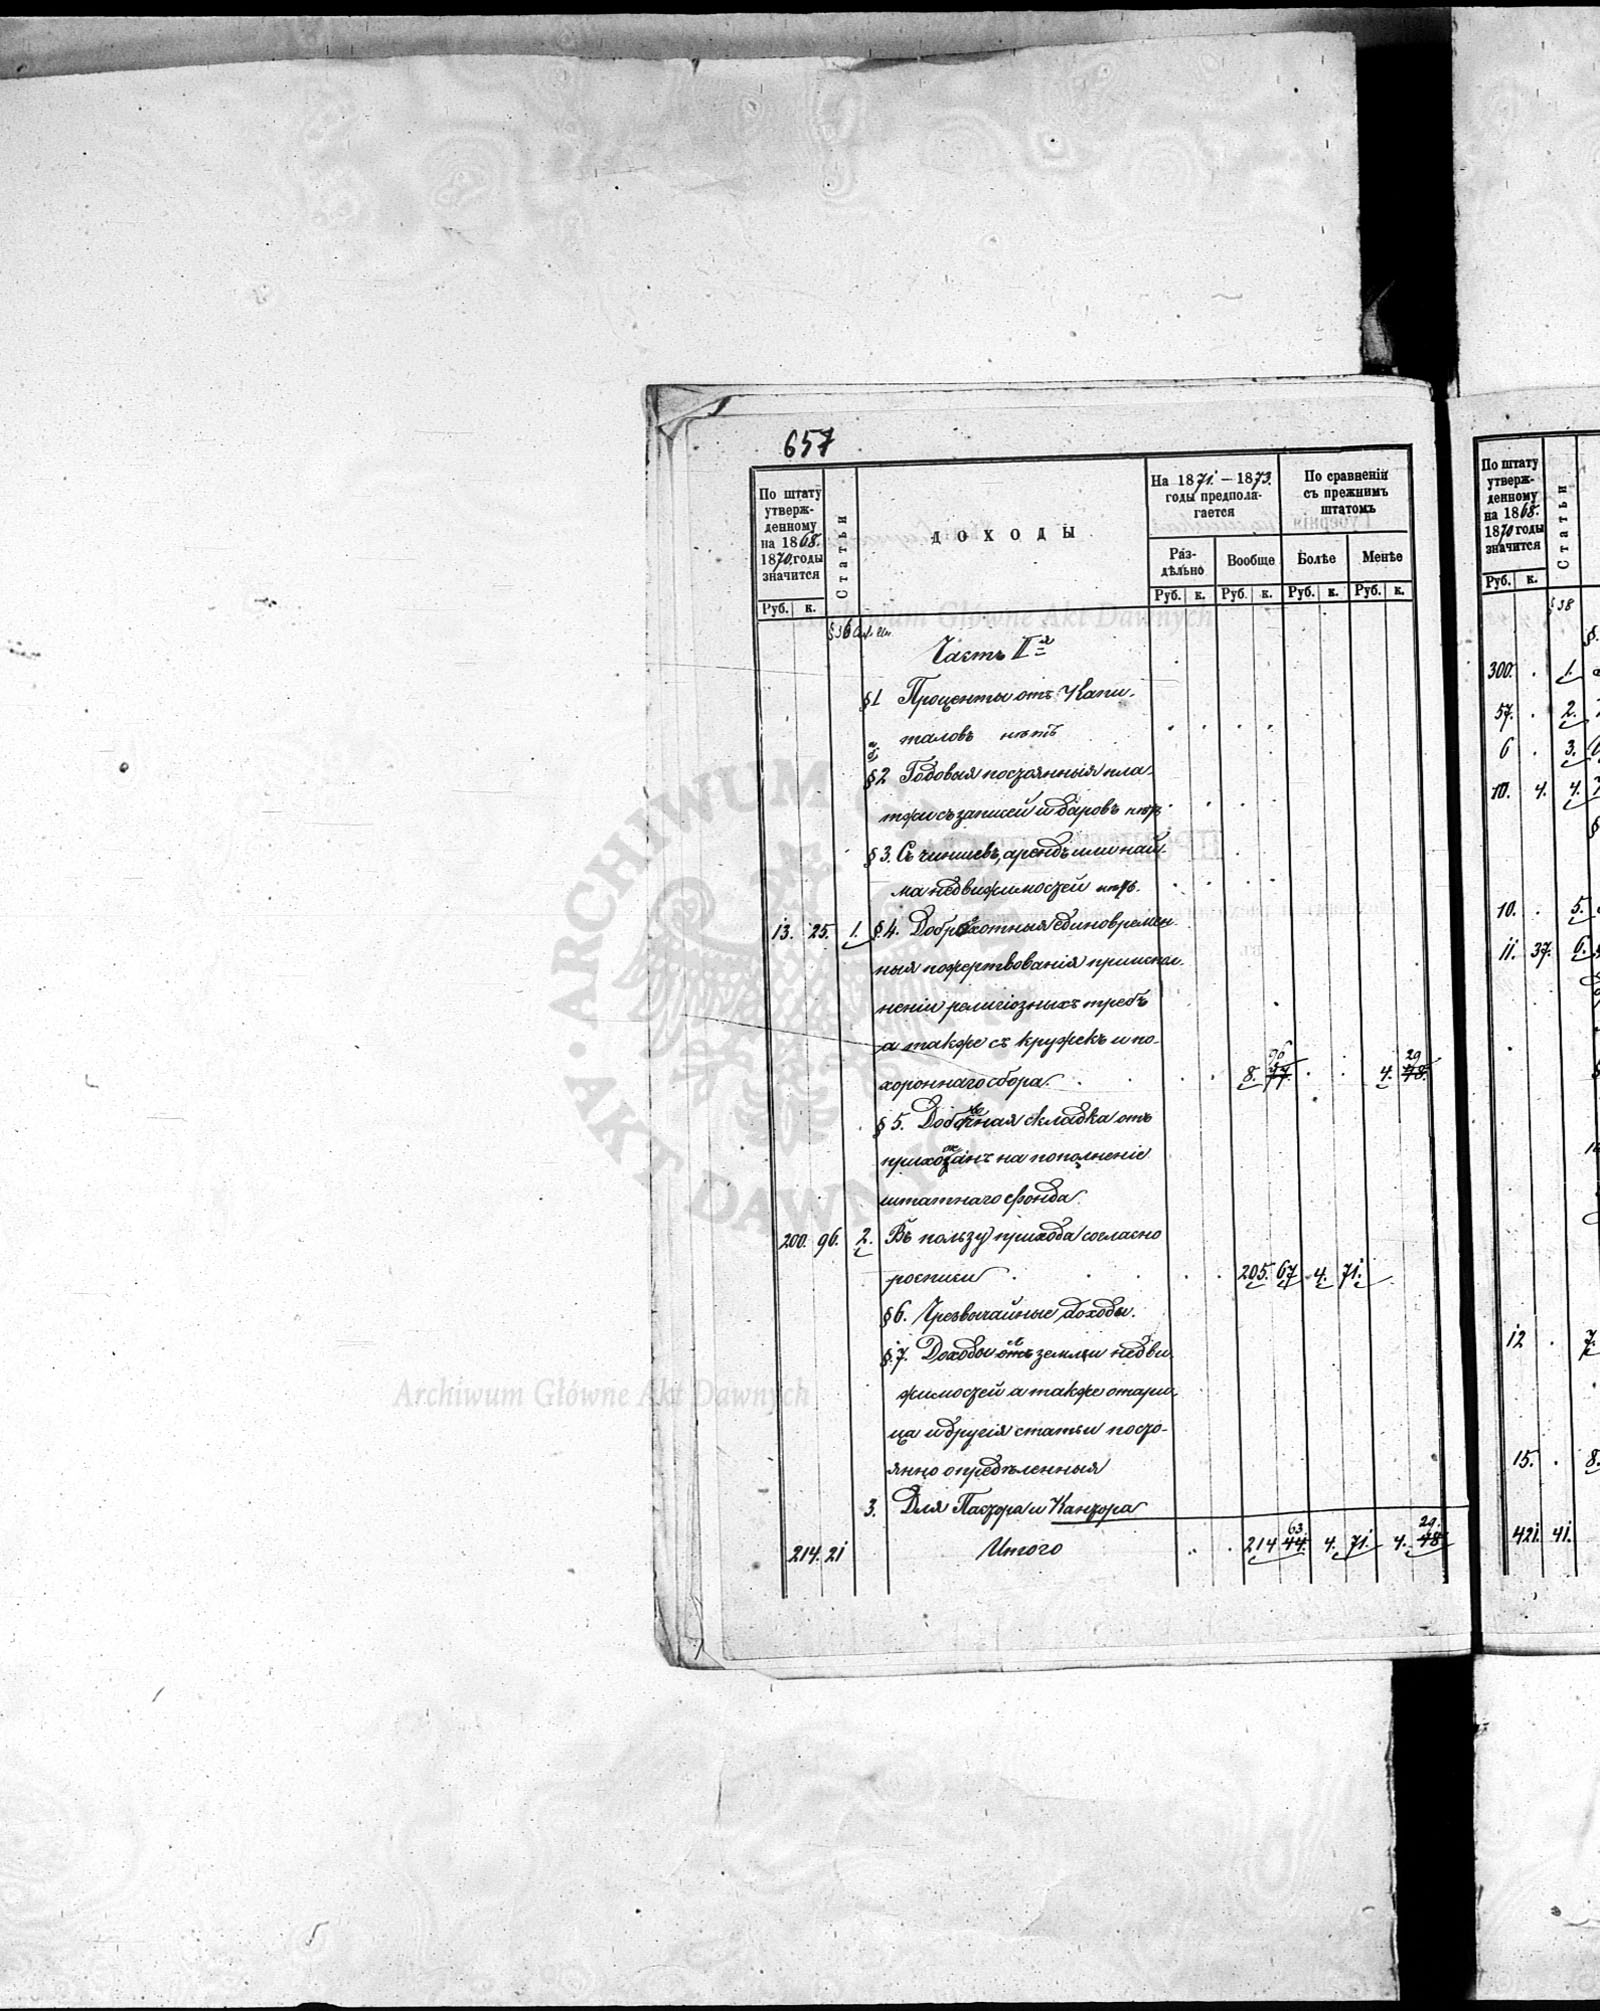 657
По штату
утверж-
денному
на 1868.
1870. годы
значится
Статьи
ДОХОДЫ
На 1871. – 1873.
годы предпола-
гается
По сравненіи
съ прежнимъ
штатомъ
Раз-
дѣльно
Вообще
Болѣе
Менѣе
Руб. к.
Руб. к. Руб. к. Руб. к. Руб. к.
§36
Часть IIя
§1 Проценты отъ Капи-
таловъ нѣтъ
§2 Годовыя постоянныя пла-
тежи съ записей и даровъ нѣтъ
§3. Съ чиншевъ, арендъ или най-
ма недвижимостей нѣтъ.
13. 25. 1. §4. Доброхотныя единовремен-
ныя пожертвованія при испол-
неніи религіозныхъ требъ
а также съ кружекъ и по-
хороннаго сбора. 8. 77. 96 4. 48. 29
§5. Добочная складка отъ
прихожанъ на пополненіе
штатнаго фонда
200. 96. 2. Въ пользу прихода согласно
росписи 205. 67 4. 71.
§6. Чрезвычайные доходы.
§7. Доходы отъ земли недви-
жимостей а также
ца и другія статьи посто-
янно опредѣленныя
3. Для Пастора и Кантора
214. 21 Итого 214 44. 63. 4. 71. 4. 48 29.
По штату
утверж-
денному
на 1868.
1870 годы
значится
Статьи
Руб. к.
§38
300. . 1.
57. . 2.
6 . 3.
10. 4. 4.
10. . 5.
11. 37. 6.
12 . 7.
15. . 8.
421. 41.
ARCHIWUM
AKT DAWNYCH
Archiwum Główne Akt Dawnych
Archiwum Główne Akt Dawnych